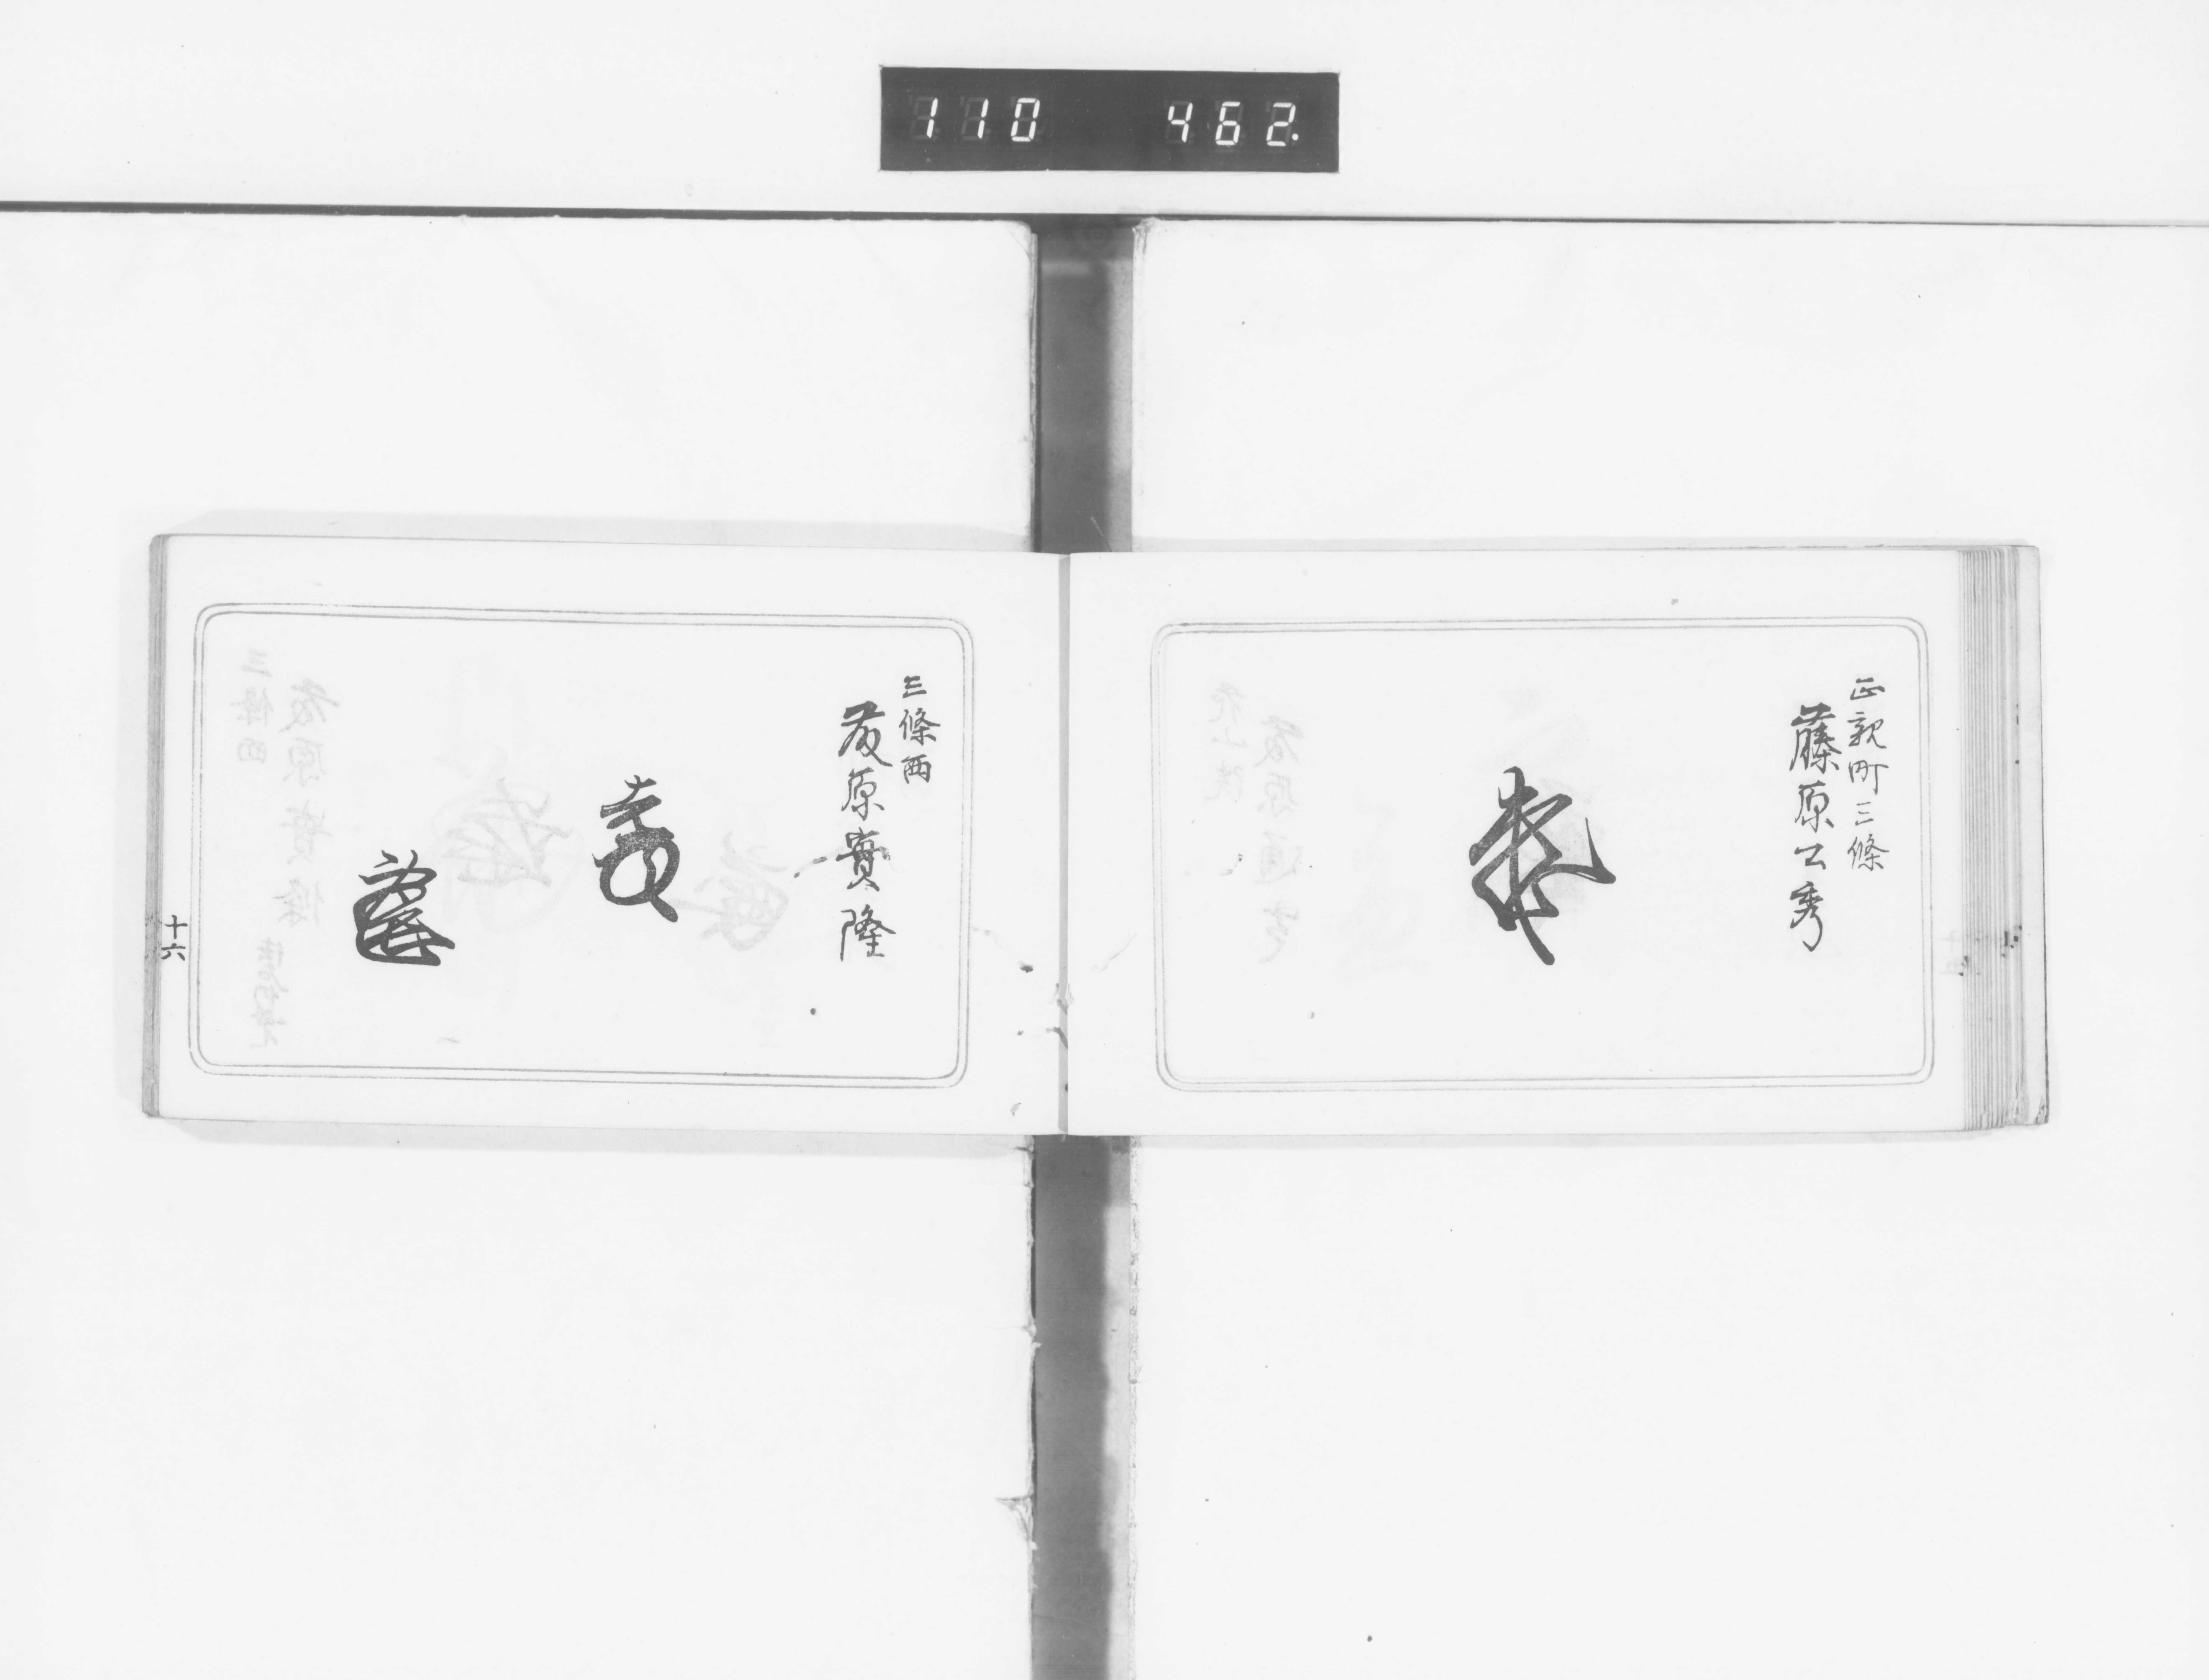 110 462.
正親町三條
藤原公秀
三條西
藤原實隆
十六